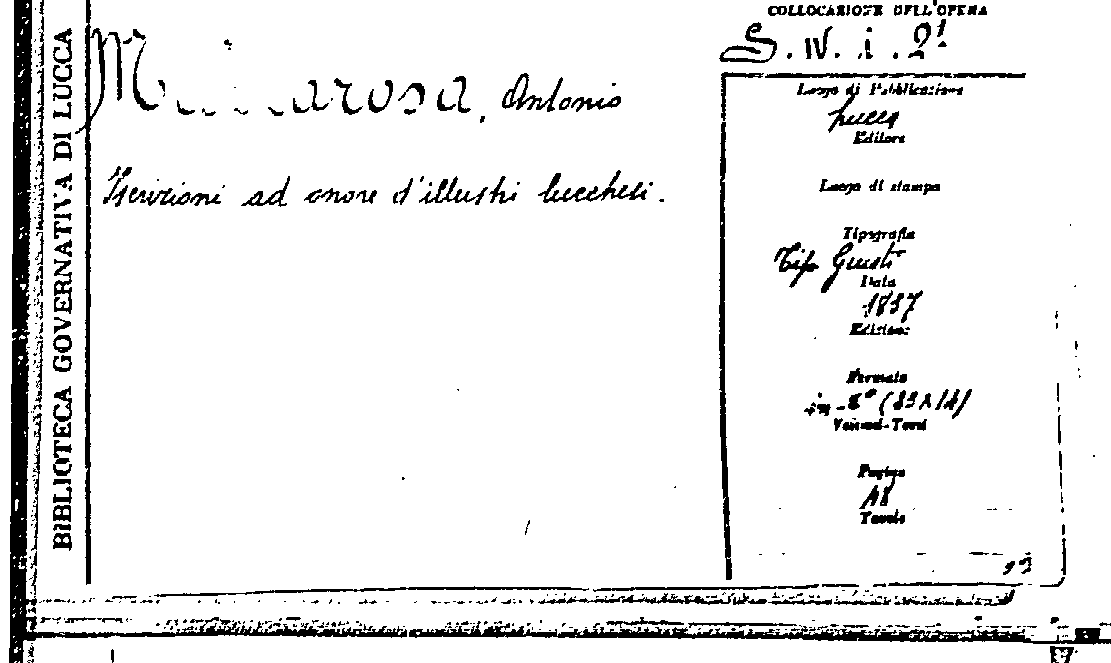 BIBLIOTECA GOVERNATIVA DI LUCCA
Antonio
Iscrizioni ad onore d'illustri lucchesi.
COLLOCAZIONE DELL'OPERA
S. IV. i. 21
Luogo di Pubblicazione
Lucca
Editore
Luogo di stampa
Tipografia
Tip Giusti
Data
1837
Edizione
Formato
in-8° (23x14)
Volumi-Tomi
Pagine
18
Tavole